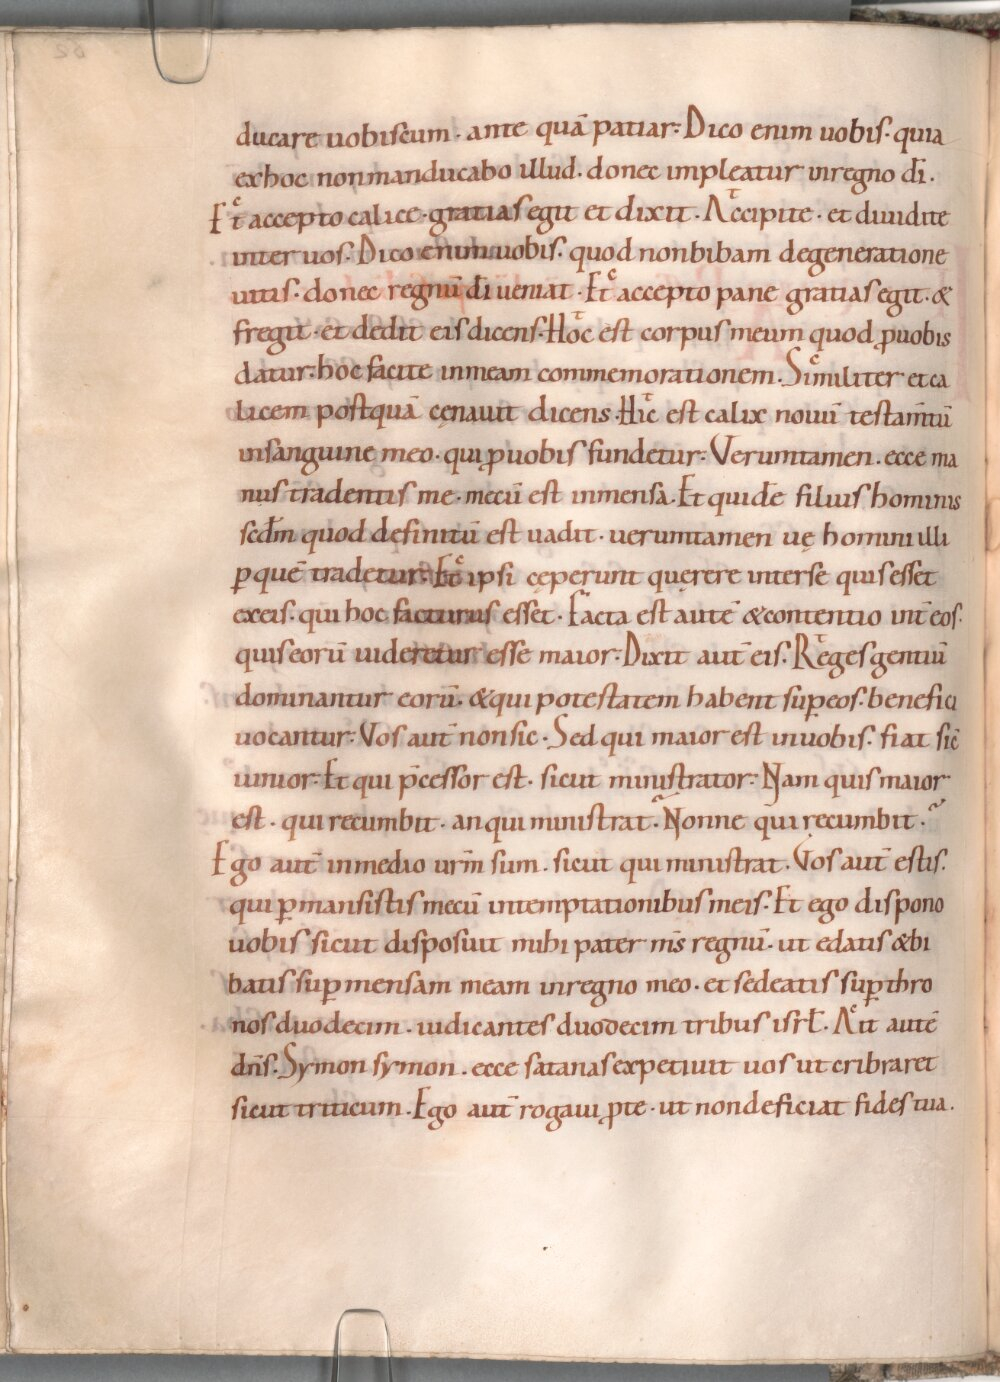 ducare uobiscum · ante quā patiar: Dico enim uobis · quia
exhoc nonmanducabo illud · donec impleatur inregno dī ·
Et accepto calice · gratias egit et dixit · Accipite · et diuidite
inter uos · Dico enim uobis · quod nonbibam degeneratione
uitis · donec regnū dī ueniat · Et accepto pane gratias egit · &
fregit · et dedit eis dicens · Hoc est corpus meum quod ꝓuobis
datur: hoc facite inmeam commemorationem · Similiter et ca
licem postquā cęnauit dicens · Hic est calix nouū testam̄tū
insanguine meo · qui ꝓuobis fundetur: Verumtamen · ecce ma
nus tradentis me · mecū est inmensa · Et quidē filius hominis
scđm quod definitū est uadit · uerumtamen uę homini illi
ꝑ quē tradetur: Et ipsi cęperunt quęrere interse quis esset
exeis · qui hoc facturus esset · Facta est autē &contentio int̄ eos ·
quis eorū uideretur esse maior: Dixit aut̄ eis · Reges gentiū
dominantur eorū · &qui potestatem habent suꝑeos · benefici
uocantur: Vos aut̄ non sic · Sed qui maior est inuobis · fiat sic̄
iunior: Et qui p̄cessor est · sicut ministrator: Nam quis maior
est · qui recumbit · an qui ministrat · Nonne qui recumbit ·
Ego aut̄ inmedio ur̄m sum · sicut qui ministrat · Vos aut̄ estis ·
qui ꝑmansistis mecū intemptationibus meis · Et ego dispono
uobis sicut disposuit mihi pater m̄s regnū · ut edatis &bi
batis suꝑ mensam meam inregno meo · et sedeatis suꝑ thro
nos duodecim · iudicantes duodecim tribus isrł · Ait autē
dn̄s · Symon symon · ecce satanas expetiuit uos ut cribraret
sicut triticum · Ego aut̄ rogaui ꝓte · ut non deficiat fides tua ·